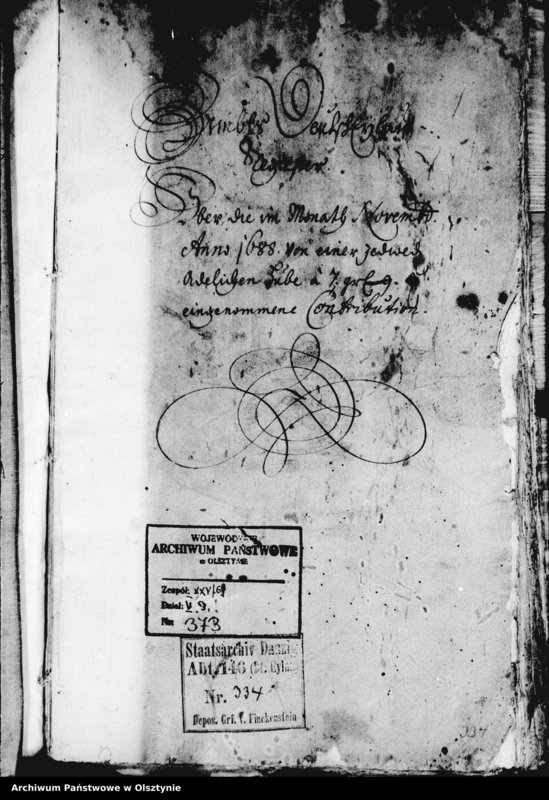 Register
Uber die im Monath Novemb.
Anno 1688. von einer jedwed.
Adelichen Hube à 7. gr
eingenommene Contribution.
WOJEWODZKIE
ARCHIWUM PAŃSTWOWE
w OLSZTYNIE
Zespół: XXV/6
Dział: V 9
Nr: 373
Staatsarchiv Danzig
Abt. 146 (Dt. Eylau)
Nr. 334
Depos. Grf. v. Finckenstein
334
Archiwum Państwowe w Olsztynie